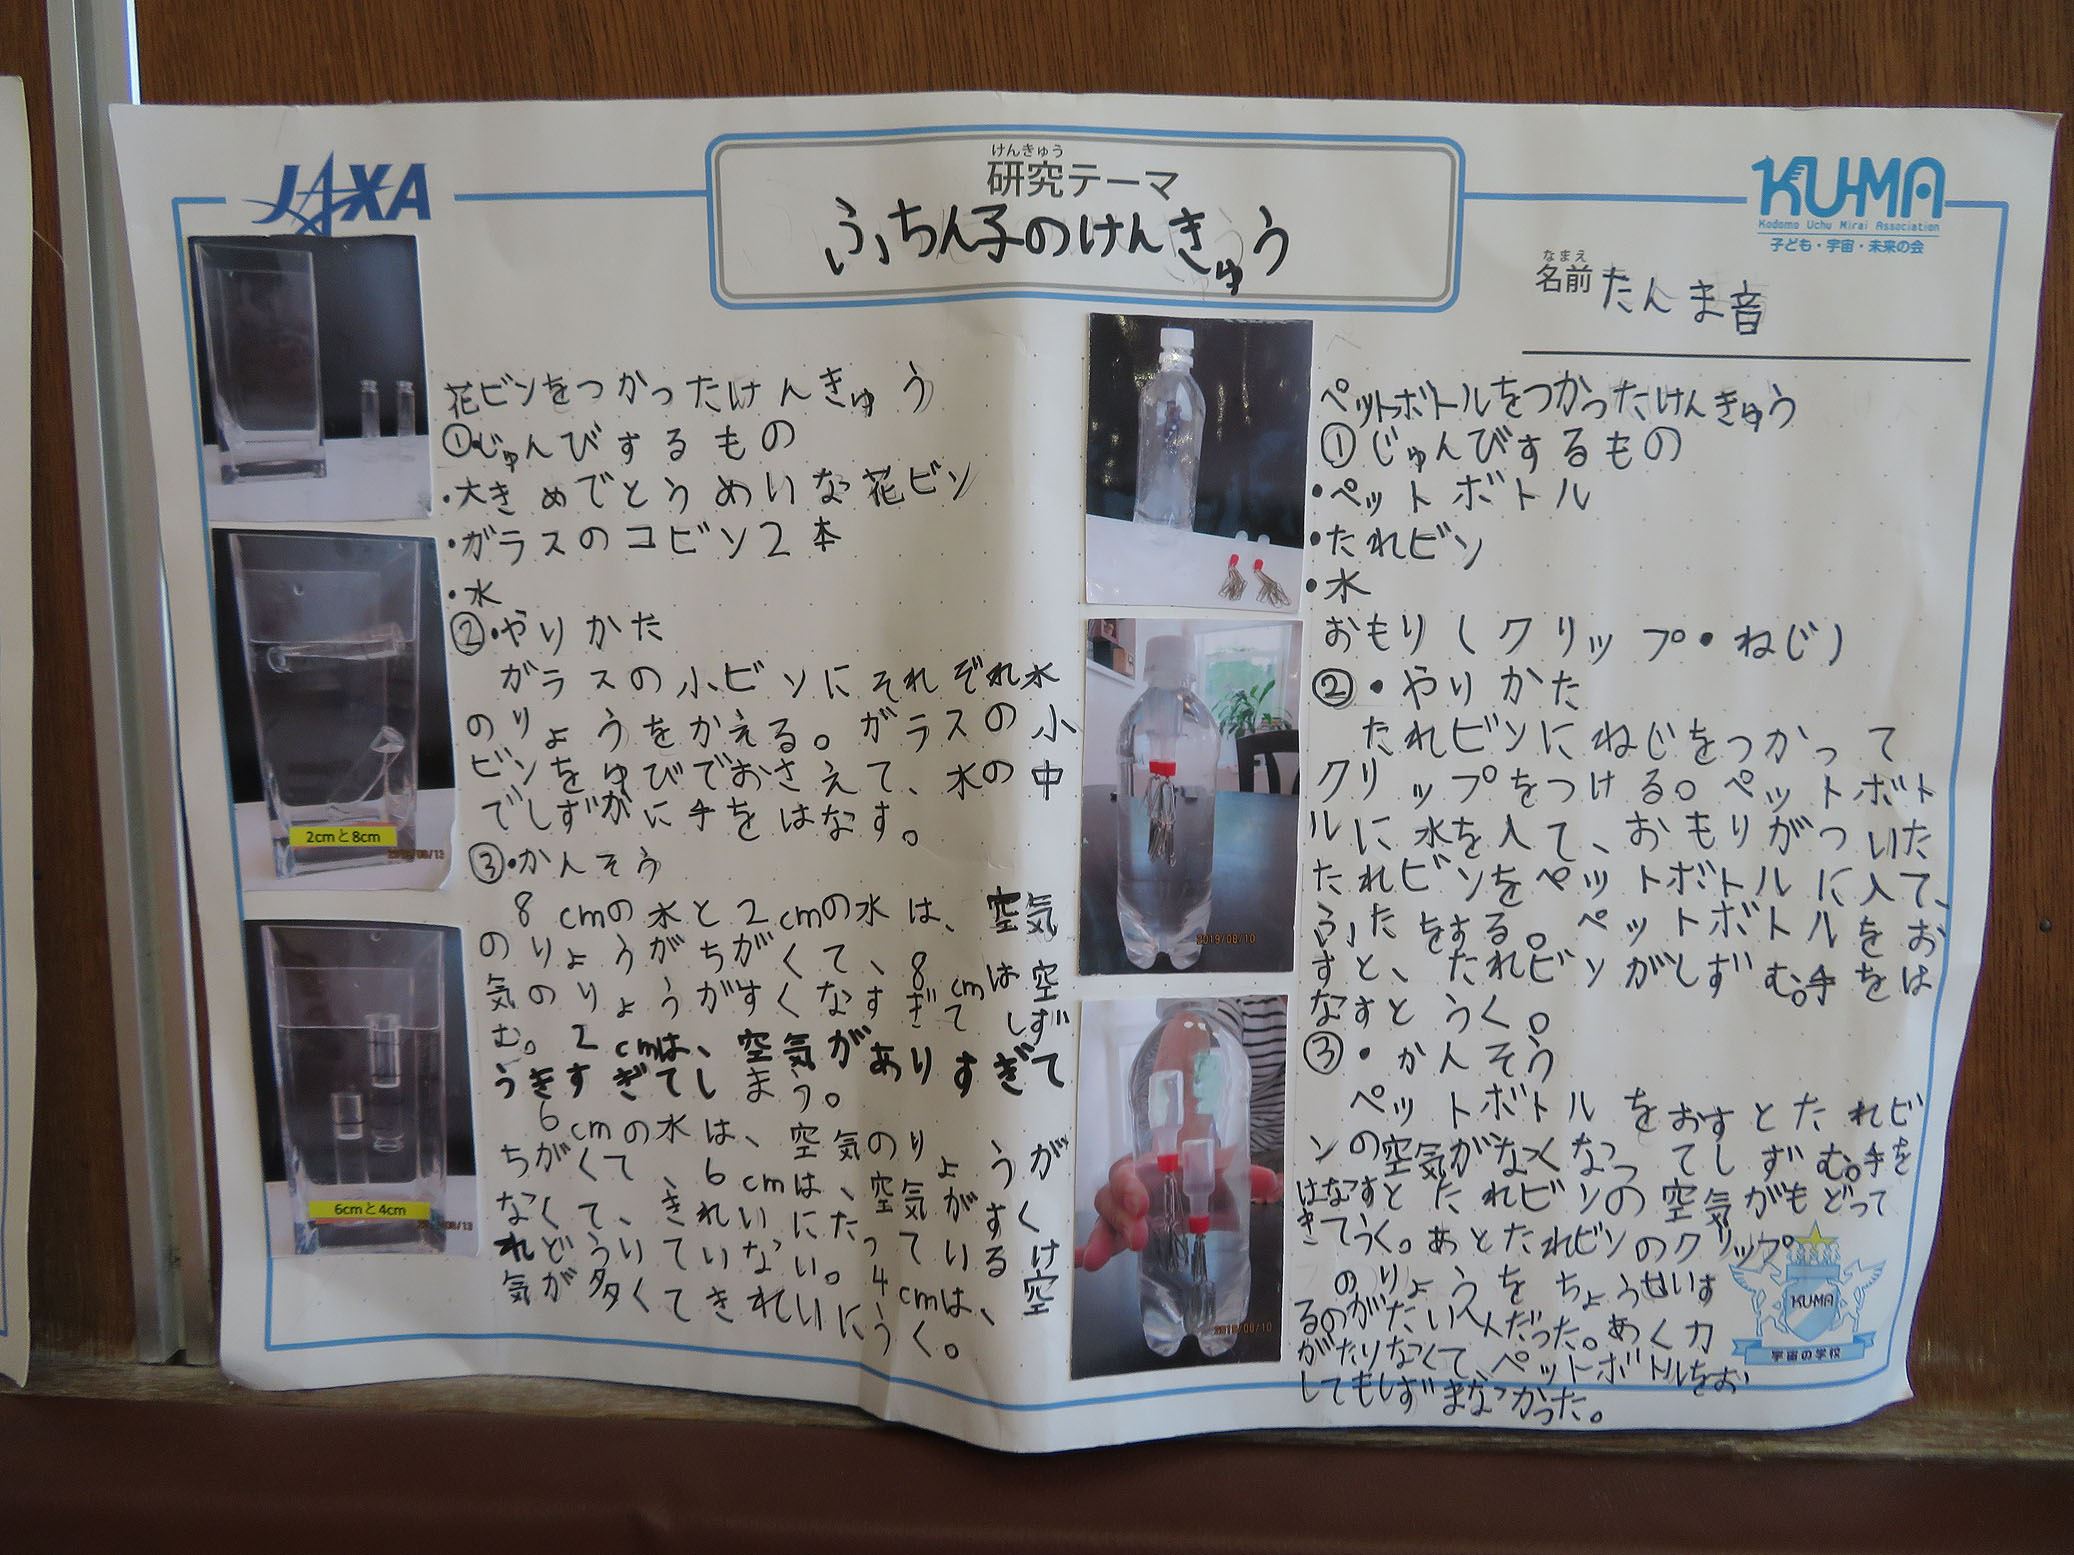 JAXA
けんきゅう
研究テーマ
ふちん子のけんきゅう
KUMA
Kodomo Uchu Mirai Association
子ども・宇宙・未来の会
なまえ
名前 たんま音
花ビンをつかったけんきゅう
①じゅんびするもの
・大きめでとうめいな花ビン
・ガラスのコビン2本
・水
②・やりかた
ガラスの小ビンにそれぞれ水
のりょうをかえる。ガラスの小
ビンをゆびでおさえて、水の中
でしずかに手をはなす。
③・かんそう
8cmの水と2cmの水は、空気
のりょうがちがくて、8cmは空
気のりょうがすくなすぎてしず
む。2cmは、空気がありすぎて
うきすぎてしまう。
6cmの水は、空気のりょうが
ちがくて、6cmは、空気がすく
なくて、きれいにたっているけ
れどういていない。4cmは、空
気が多くてきれいにうく。
2cmと8cm
6cmと4cm
ペットボトルをつかったけんきゅう
①じゅんびするもの
・ペットボトル
・たれビン
・水
おもり(クリップ・ねじ)
②・やりかた
たれビンにねじをつかって
クリップをつける。ペットボト
ルに水を入て、おもりがついた
たれビンをペットボトルに入て、
ふたをする。ペットボトルをお
すと、たれビンがしずむ。手をは
なすとうく。
③・かんそう
ペットボトルをおすとたれビ
ンの空気がなくなってしずむ。手を
はなすとたれビンの空気がもどって
きてうく。あとたれビンのクリップ
のりょうをちょうせいす
るのがたいへんだった。あく力
がたりなくて、ペットボトルをお
してもしずまなかった。
2019/08/10
2019/08/10
KUMA
宇宙の学校